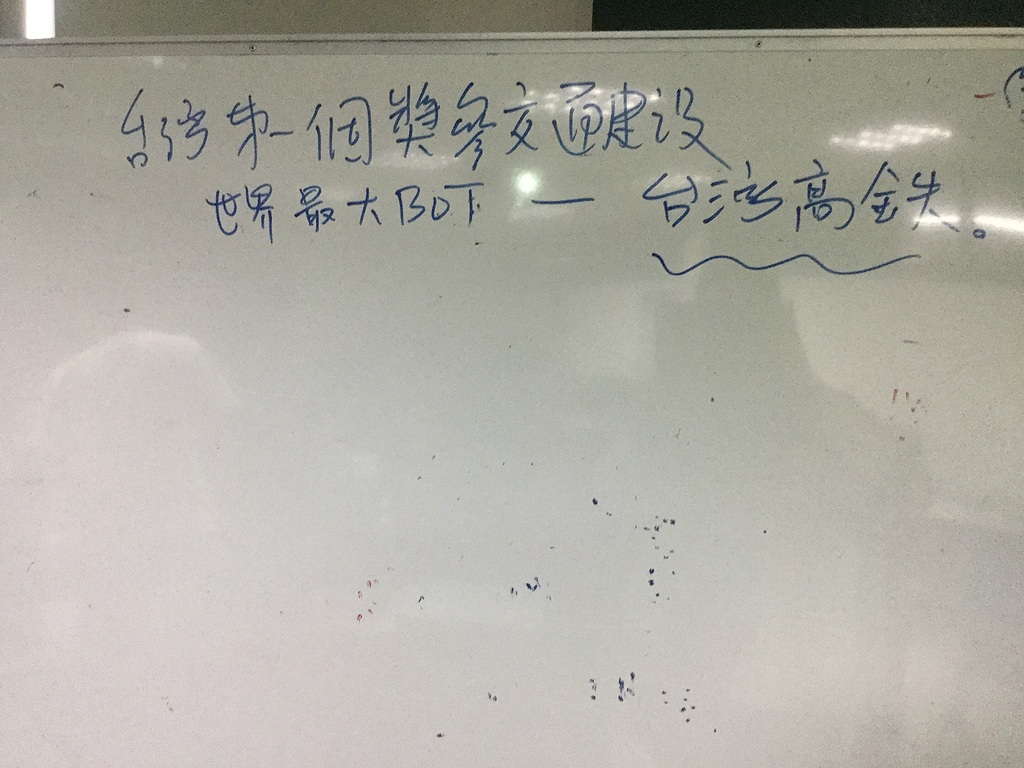 台湾第一個獎參交通建设
世界最大BOT — 台湾高鉄。